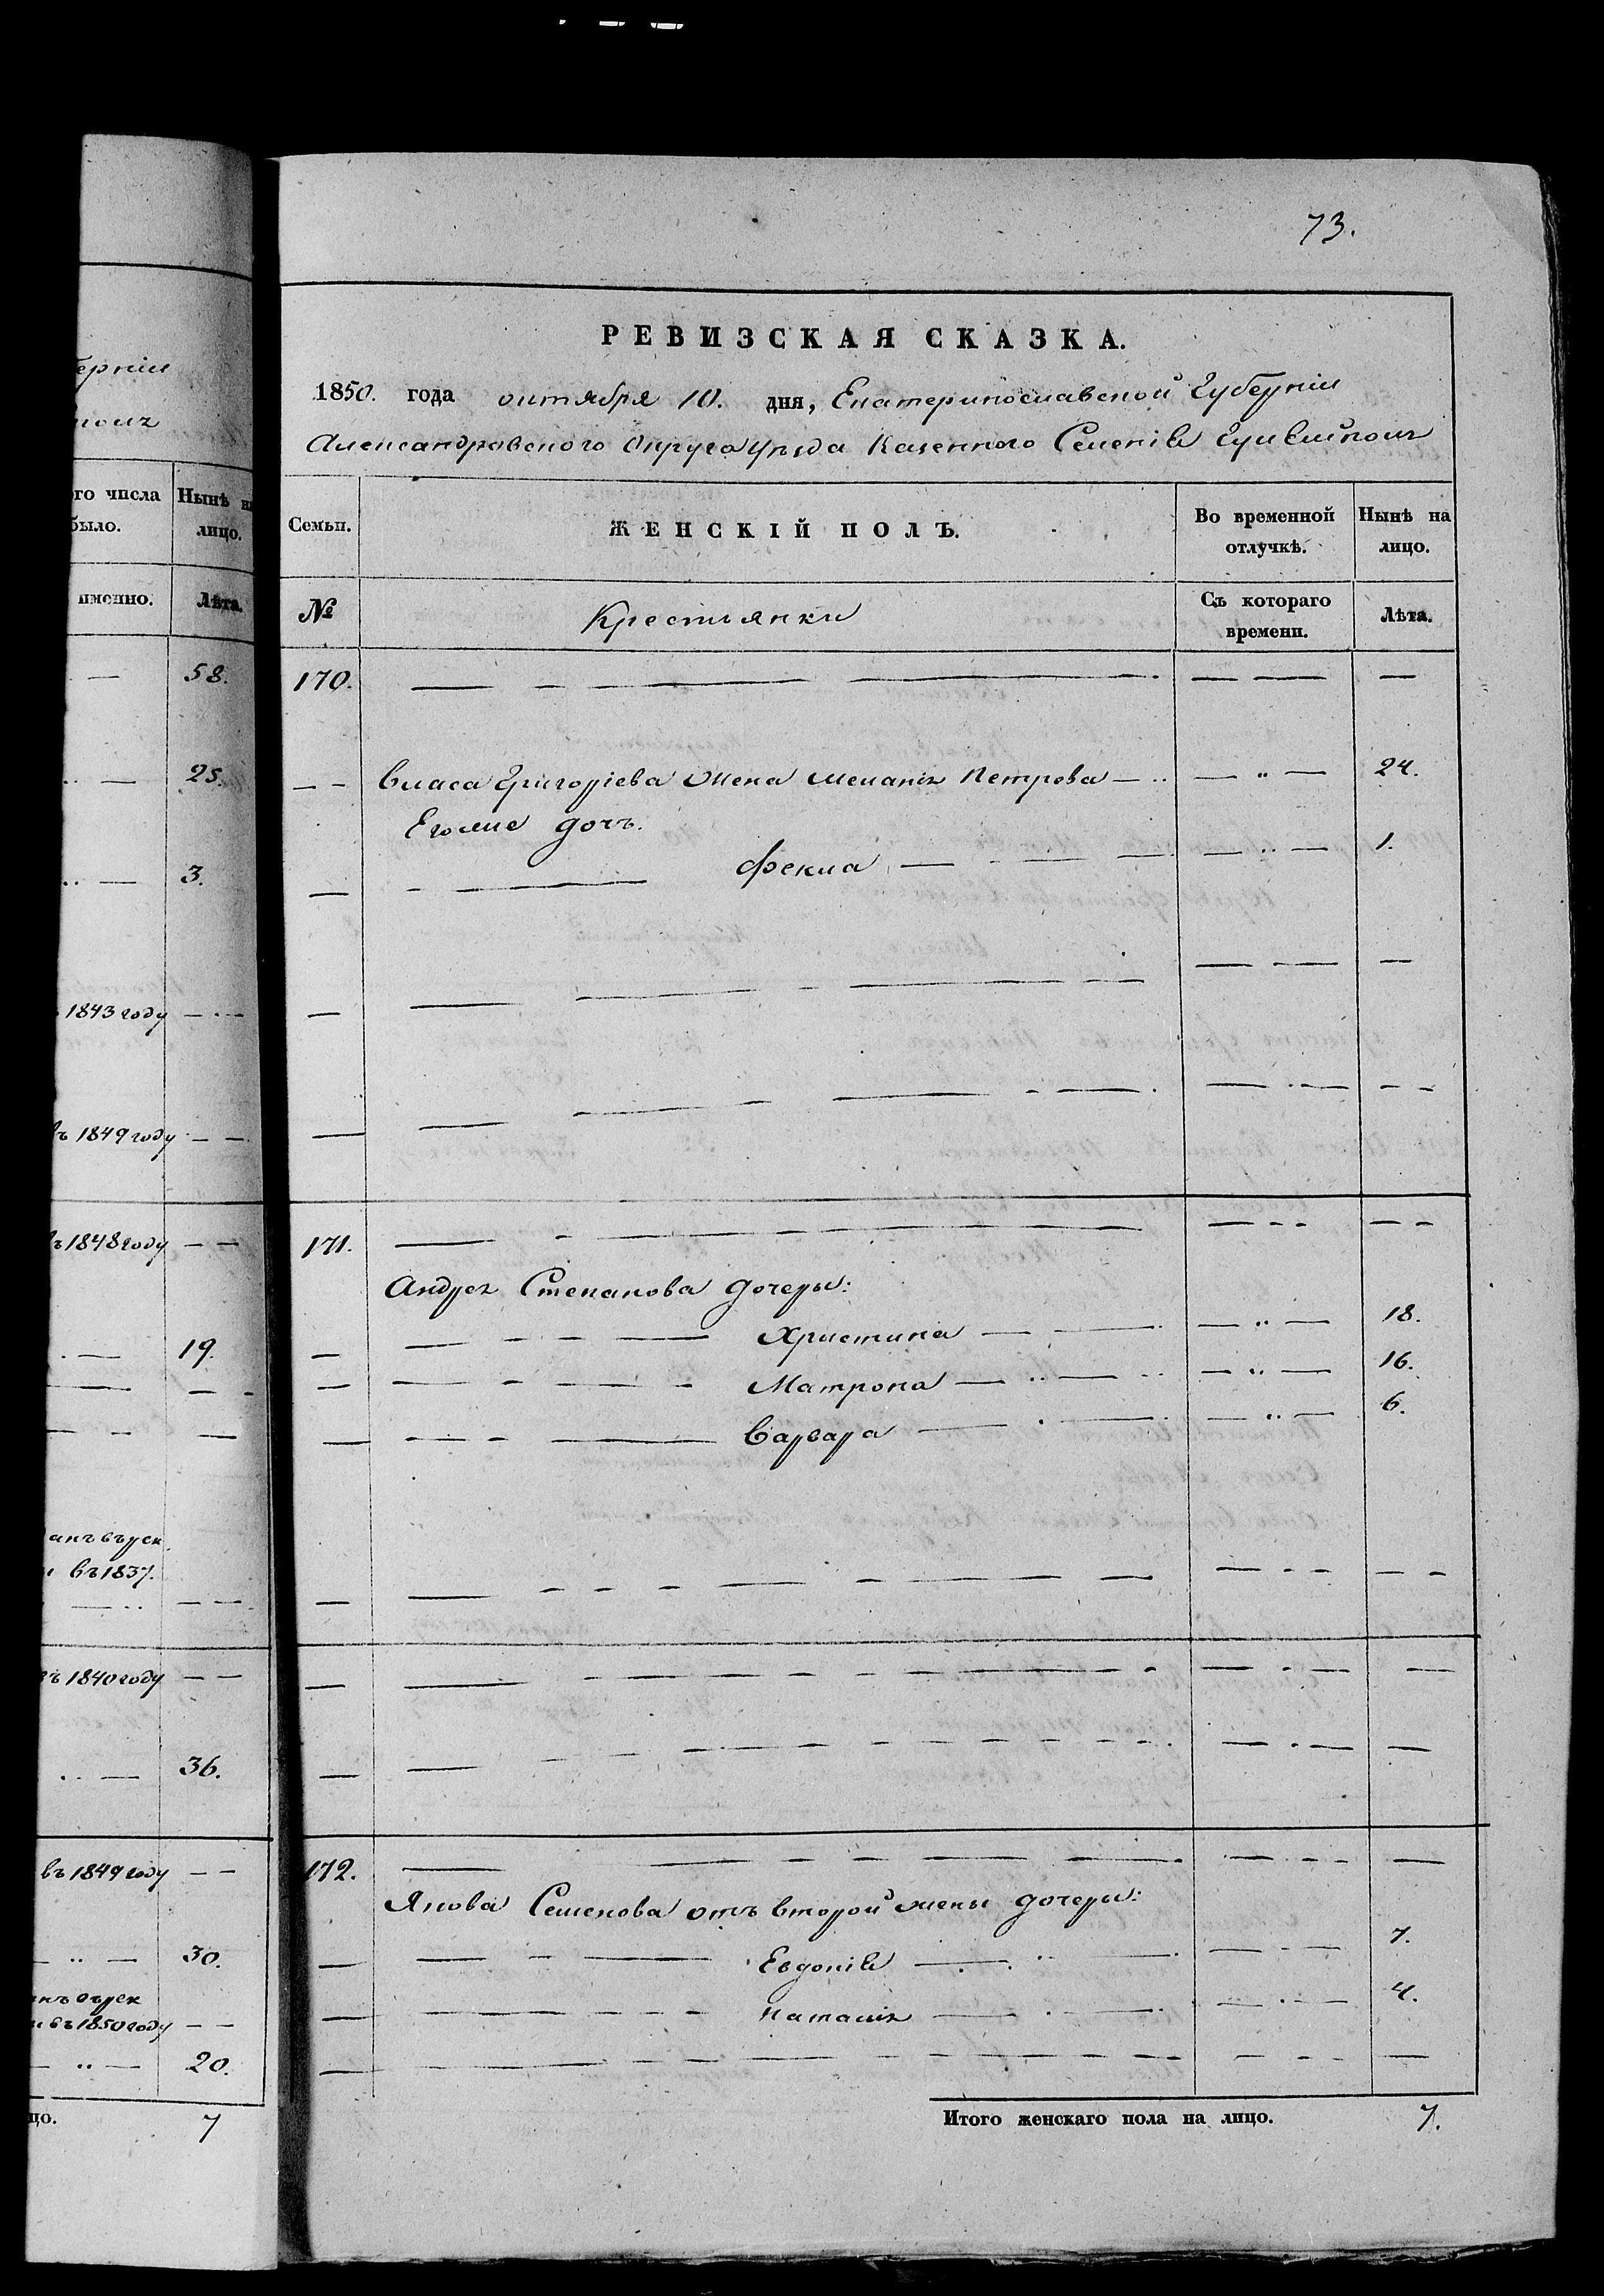 73.
РЕВИЗСКАЯ СКАЗКА.
1850. года октября 10. дня, Екатеринославской Губерніи
Александровского Округа Уѣзда Казенного Селенія
Семьи. ЖЕНСКІЙ ПОЛЪ. Во временной отлучкѣ. Нынѣ на лицо.
№ Крестьянки Съ котораго времени. Лѣта.
170.
Власа Григоріева жена Меланія Петрова 24.
Его же дочь.
Фекла 1.
171.
Андрея Степанова дочеры:
Христина 18.
Матрона 16.
Варвара 6.
172.
Якова Семенова отъ второй жены дочеры:
Евдокія 7.
Наталія 4.
Итого женскаго пола на лицо. 7.
ерніи
го числа Нынѣ на
было. лицо.
именно. Лѣта.
58.
25.
3.
1843 году
ъ 1849 году
ъ 1848 году
19.
анъ въ рек
въ 1837.
ъ 1840 году
36.
въ 1849 году
30.
въ 1850 году
20.
цо. 7